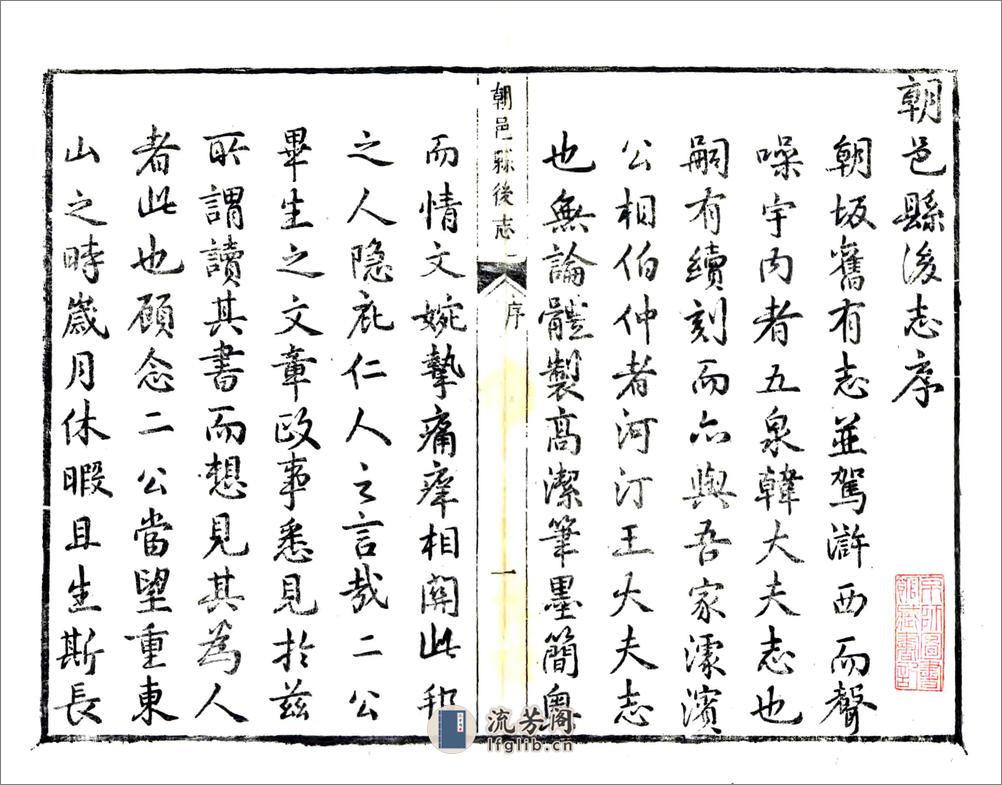 朝邑縣後志序
朝坂舊有志並駕滸西而聲
噪宇內者五泉韓大夫志也
嗣有續刻而亦與吾家濛濱
公相伯仲者河汀王大夫志
也無論體製高潔筆墨簡奧
朝邑縣後志
序
一
而情文婉摯痛癢相關此
之人隐
仁人之言哉二公
畢生之文章政事悉見於茲
所謂讀其書而想見其為人
者此也顧念二公當望重東
山之時歲月休暇且生斯長
京師圖書
館藏書記
流芳阁
lfglib.cn